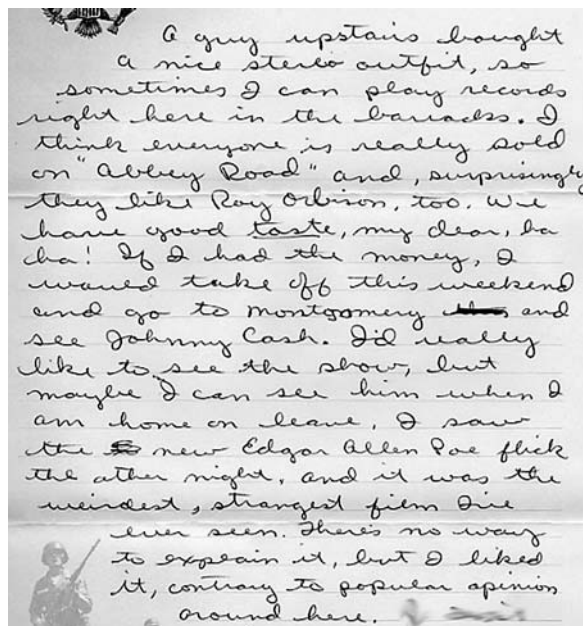 A guy upstairs bought
a nice stereo outfit, so
sometimes I can play records
right here in the barracks. I
think everyone is really sold
on "Abbey Road" and, surprisingly
they like Roy Orbison, too. We
have good taste, my dear, ha
cha! If I had the money, I
would take off this weekend
and go to Montgomery and
see Johnny Cash. I'd really
like to see the show, but
maybe I can see him when I
am home on leave. I saw
the new Edgar Allen Poe flick
the other night, and it was the
weirdest, strangest film I've
ever seen. There's no way
to explain it, but I liked
it, contrary to popular opinion
around here.